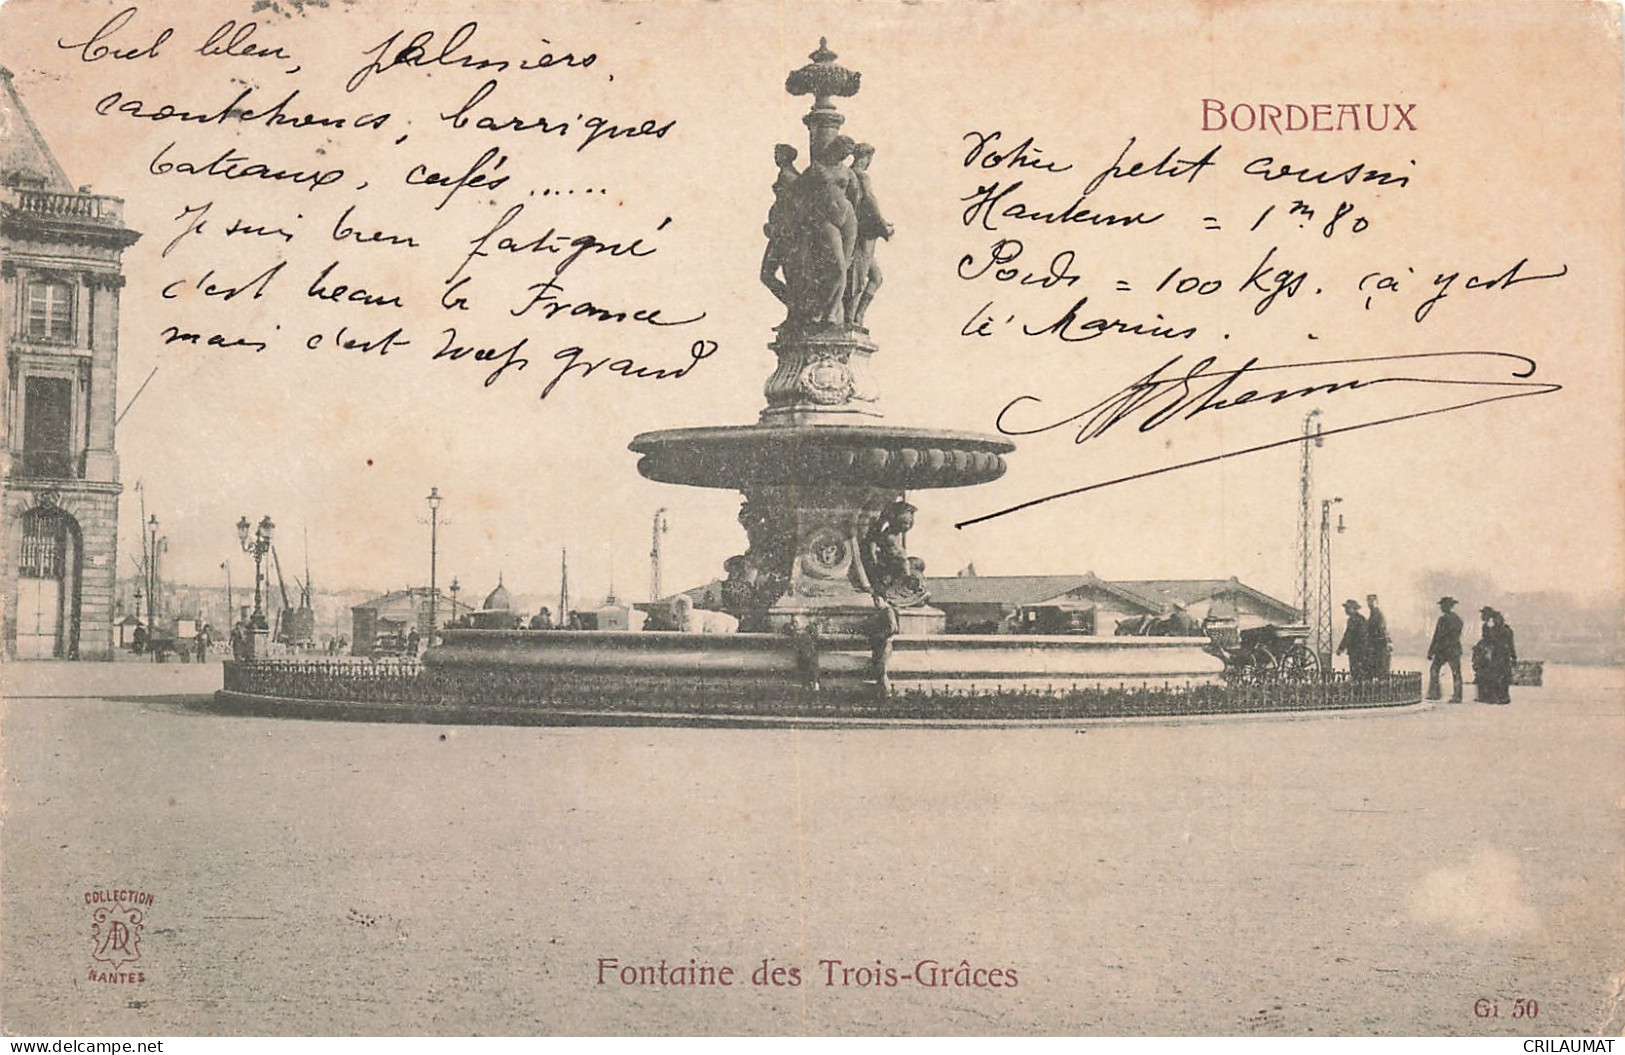 Ciel bleu, palmiers,
caoutchoucs, barriques
bateaux, cafés ......
Je suis bien fatigué
c'est beau la France
mais c'est trop grand
BORDEAUX
Votre petit cousin
Hauteur = 1m.80
Poids = 100 Kgs. ça y est
lé Marius.
COLLECTION
ADR
NANTES
Fontaine des Trois-Grâces
Gi 50
delcampe.net
CRILAUMAT